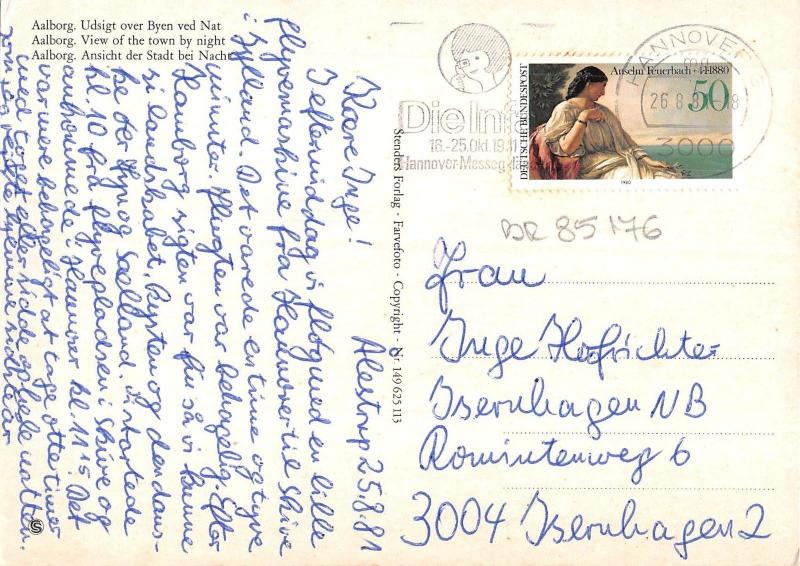 Aalborg. Udsigt over Byen ved Nat
Aalborg. View of the town by night
Aalborg. Ansicht der Stadt bei Nacht
Alestrup 25.8.81
Kaere Inge!
I eftermiddag vi fløg med en lille
flyvemaskine fra Hannover til Skive
i Jylland. Det varede en time og tyve
minuter. Flugten var behagelig. Efter
Hamburg sigten var fin så vi kunne
se landskabet, kysten og den dans-
ke øer Fyn og Saelland. Vi startede
kl. 10 fra flyvepladsen i Skive og
i Hannover kl. 11.15. Det
var mere behageligt at tage otte timer
med toget eller sidde
Stenders Forlag - Farvefoto - Copyright - Nr. 149 625 113
Die Inf
16.-25.Okt.1981
Hannover-Messegelände
HANNOVER
26.8.81
3000
Anselm Feuerbach · 1880
50
DEUTSCHE BUNDESPOST
1980
BR 85176
Frau
Inge Hofrichter
Isernhagen NB
Romintenweg 6
3004 Isernhagen 2